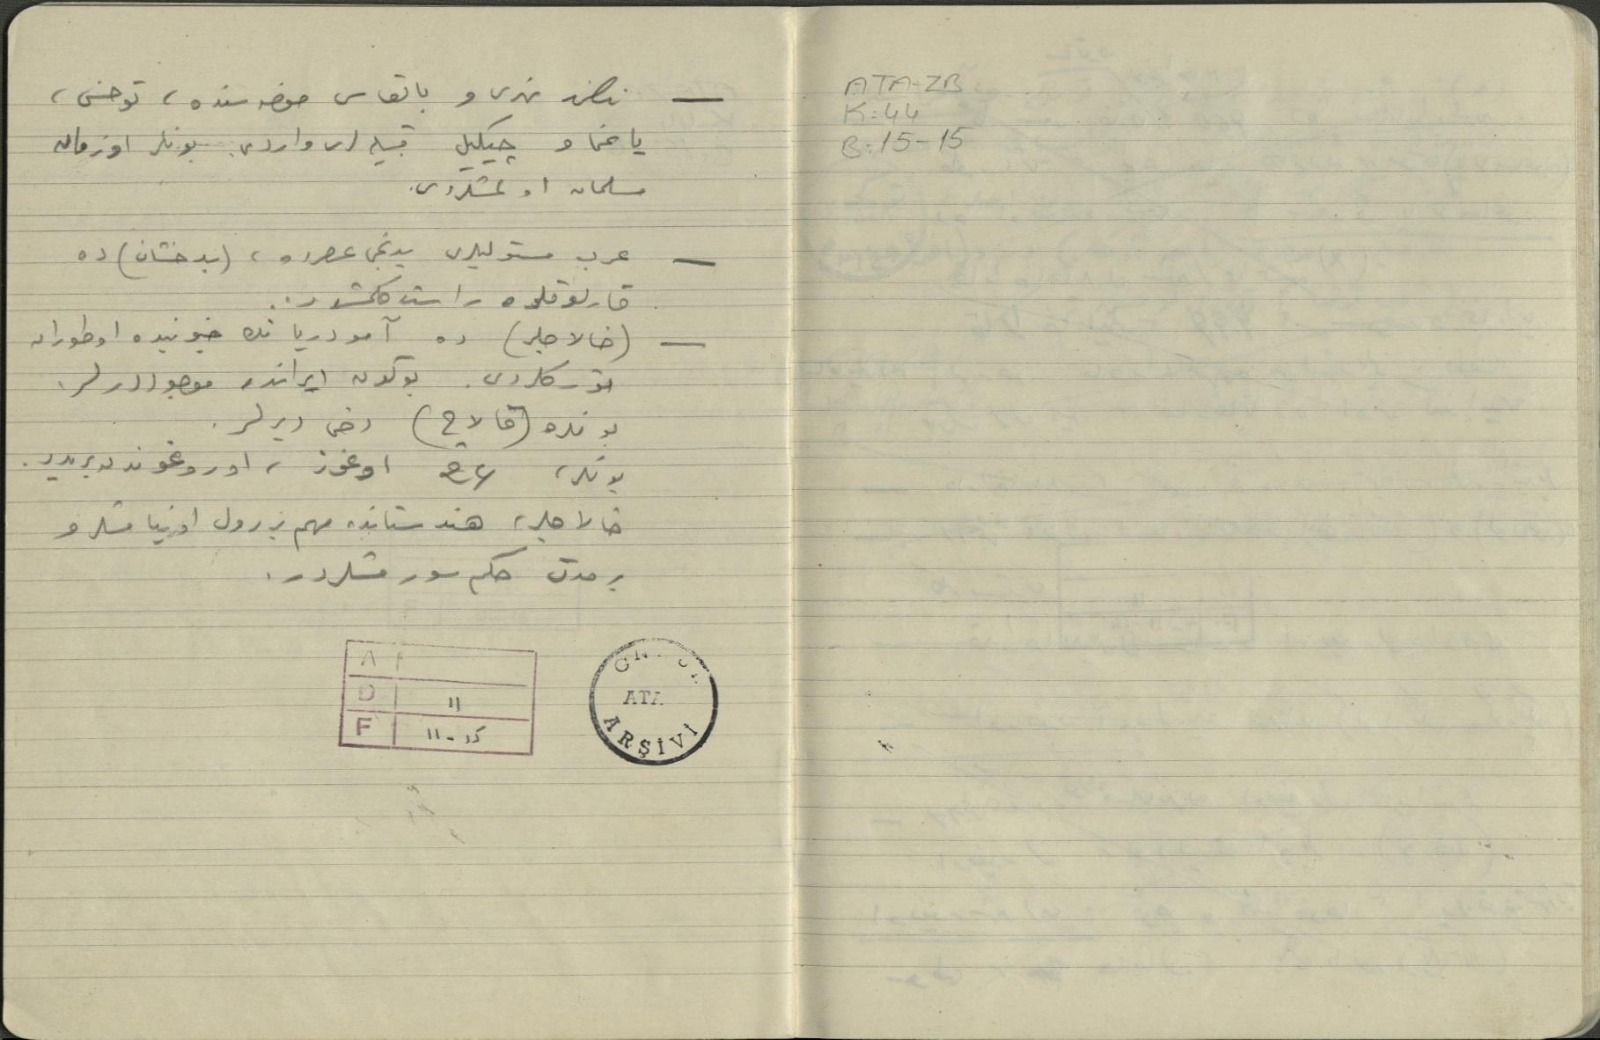 — نهری و بالقاش حوضه سنده ، توخسی ،
یاغما و چیکیل قبیله لری واردی. بونلر اوزمان
مسلمان اولمشلردی.
— عرب مستولیلری یدنجی عصرده ، (بدخشان) ده
قارلوقلره راست كلمشلردر.
— (خالاجلر) ده آمودریا نك جنوبنده اوطوران
تورکلردی. بوكون ایرانده موجوددرلر.
بونلره (قالاچ) دخی دیرلر.
بونلر، ٢٤ اوغوز ، اوروغوندن بریدر.
خالاجلر، هندستانده مهم بر رول اوینامشلر و
بر مدت حکم سورمشلردر.
A
D ١١
F ١١-١٥
ATA
ARŞİVİ
ATA-ZB
K:44
B:15-15